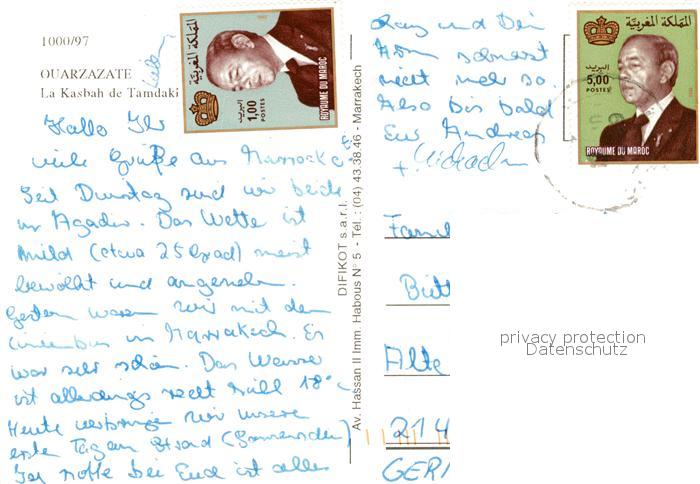 1000/97
OUARZAZATE
La Kasbah de Tamdakt
المملكة المغربية
البريد
1,00
POSTES
ROYAUME DU MAROC
Hallo Ihr
Lieben
viele Grüße aus Marrocko
Seit Dienstag sind wir beide
in Agadir. Das Wetter ist
mild (etwa 25 Grad) meist
bewölkt und angenehm.
Gestern waren wir mit dem
Linienbus in Marrakech. Es
war sehr schön. Das Wasser
ist allerdings recht kühl 18°C
Heute verbringen wir unseren
ersten Tag am Strand (Sonnenschein)
Ich hoffe bei Euch ist alles
DIFIKOT s.a.r.l.
Av. Hassan II Imm. Habous N° 5 - Tel. : (04) 43.38.46 - Marrakech
und Dein
Arm schmerzt
nicht mehr so.
Also bis bald
Eur Andreas
+ Michael
المملكة المغربية
البريد
5,00
POSTES
ROYAUME DU MAROC
Famil
Bütt
Alte
214
GERM
privacy protection
Datenschutz